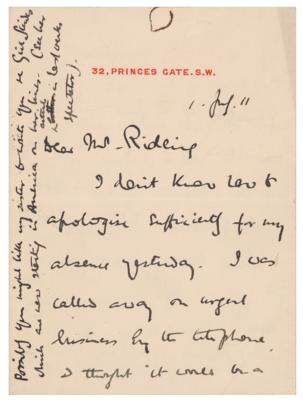 32, PRINCES GATE. S.W.
1. July. 11
Dear Mr. Rideing
I don't know how to
apologise sufficiently for my
absence yesterday. I was
called away on urgent
business by the telephone.
I thought it would be a
Possibly you might like my sister to write you on Girl Guides
which are now starting in America on her lines. (See her
article in last week's
Spectator).